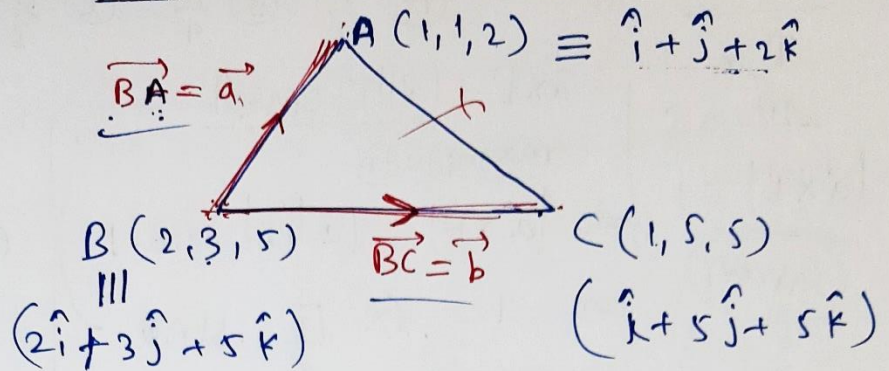 A (1,1,2) ≡ î + ĵ + 2k̂
B⃗A⃗ = a⃗
B (2,3,5)
B⃗C⃗ = b⃗
C (1,5,5)
|||
(2î + 3ĵ + 5k̂)
(î + 5ĵ + 5k̂)